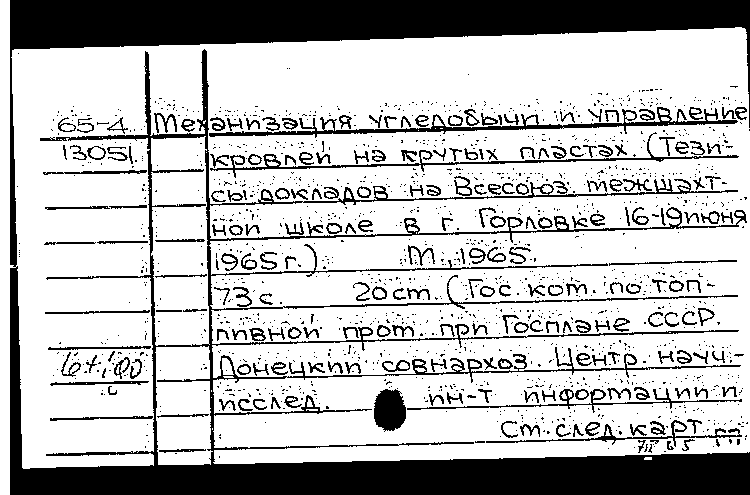 65-4 Механизация угледобычи и управление
13051 кровлей на крутых пластах. (Тези-
сы докладов на Всесоюз. межшахт-
ной школе в г. Горловке 16-19 июня
1965 г.). М., 1965.
73 с. 20 см. (Гос. ком. по топ-
ливной пром. при Госплане СССР.
Донецкий совнархоз. Центр. науч.-
исслед. ин-т информации и
См. след. карт.